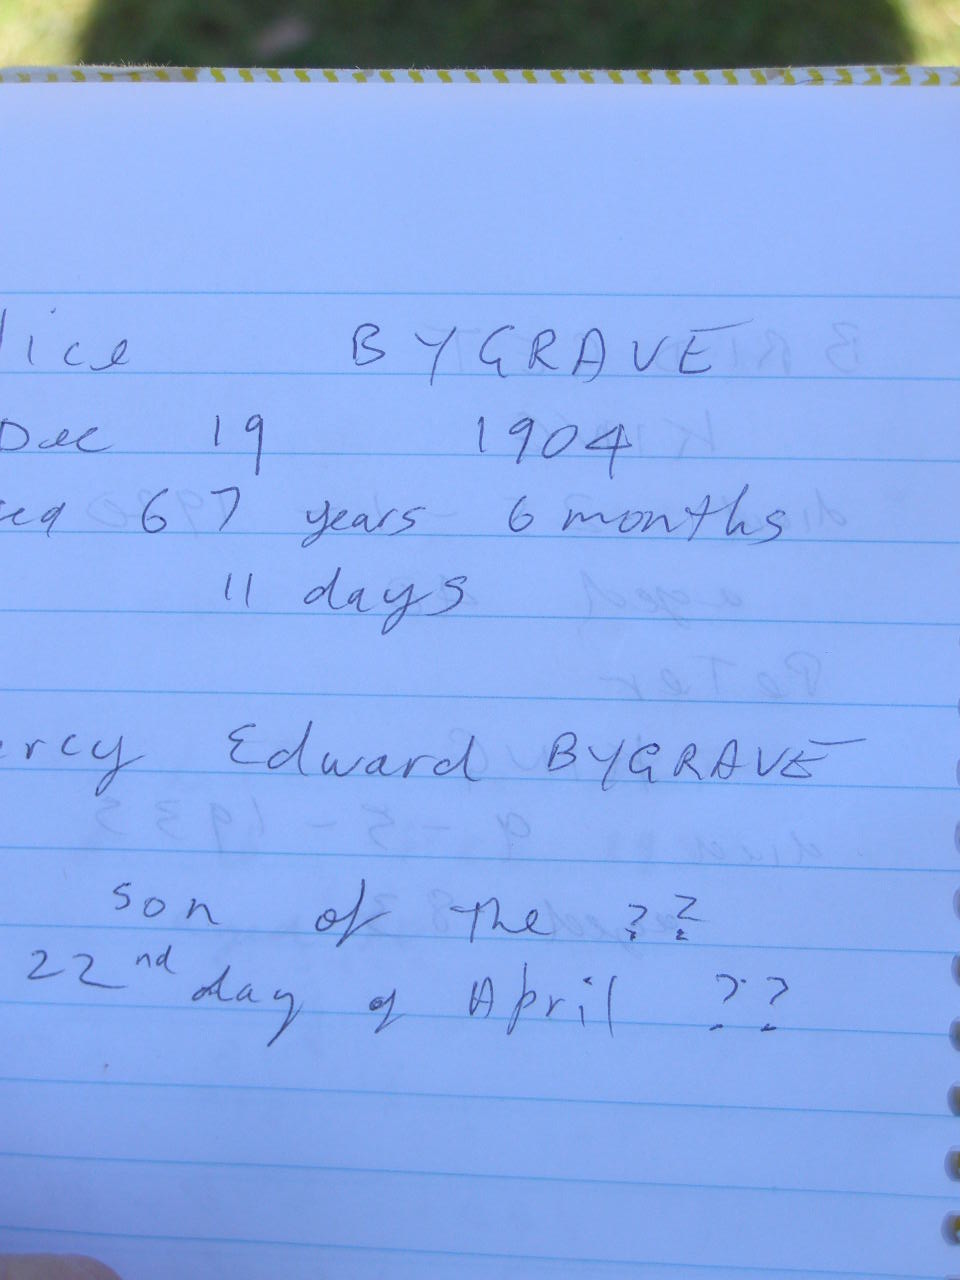 lice BYGRAVE
Dec 19 1904
ed 67 years 6 months
11 days
ercy Edward BYGRAVE
son of the ??
22nd day of April ??